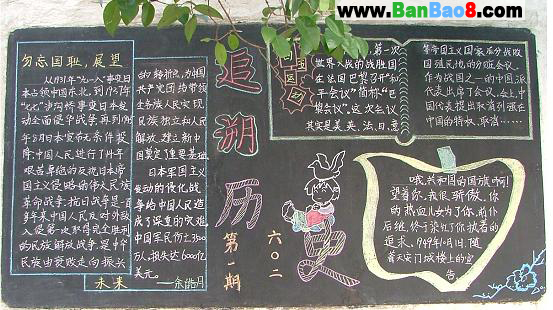 www.BanBao8.com
勿忘国耻,展望
未来
从1931年“九一八”事变日
本占领中国东北,到1937年
“七七”卢沟桥事变日本发
动全面侵华战争,再到1945
年8月日本宣布无条件投
降,中国人民进行了14年
艰苦卓绝的反抗日本帝
国主义侵略的伟大民族
革命战争。抗日战争是一百
多年来中国人民反对外敌
入侵第一次取得完全胜利
的民族解放战争,是中华
民族由衰败走向振兴
的转折点,为中国
共产党团结带领
全各族人民实现
民族独立和人民
解放,建立新中
国奠定了重要基础
日本军国主义
发动的侵化战
争给中国人民造
成了深重的灾难,
中国军民伤亡3500
万人,损失达6000亿
美元。
——余皓月
追溯
历史
第一期
六〇二
第一次
世界大战的战胜国
在法国巴黎召开“和
平会议”简称“巴
黎会议”。这次会议
其实是美、英、法、日、意
等帝国主义国家瓜分战败
国殖民地的分赃会议,
作为战国之一的中国派
代表出席了会议,会上,中
国代表提出取消列强在
中国的特权、取消……
哦,共和国的国旗啊!
望着你,我很骄傲,你
的热血儿女为了你,前仆
后继,终于染红了你执着的
追求,1949年10月1日,随
着天安门城楼上的宣
告